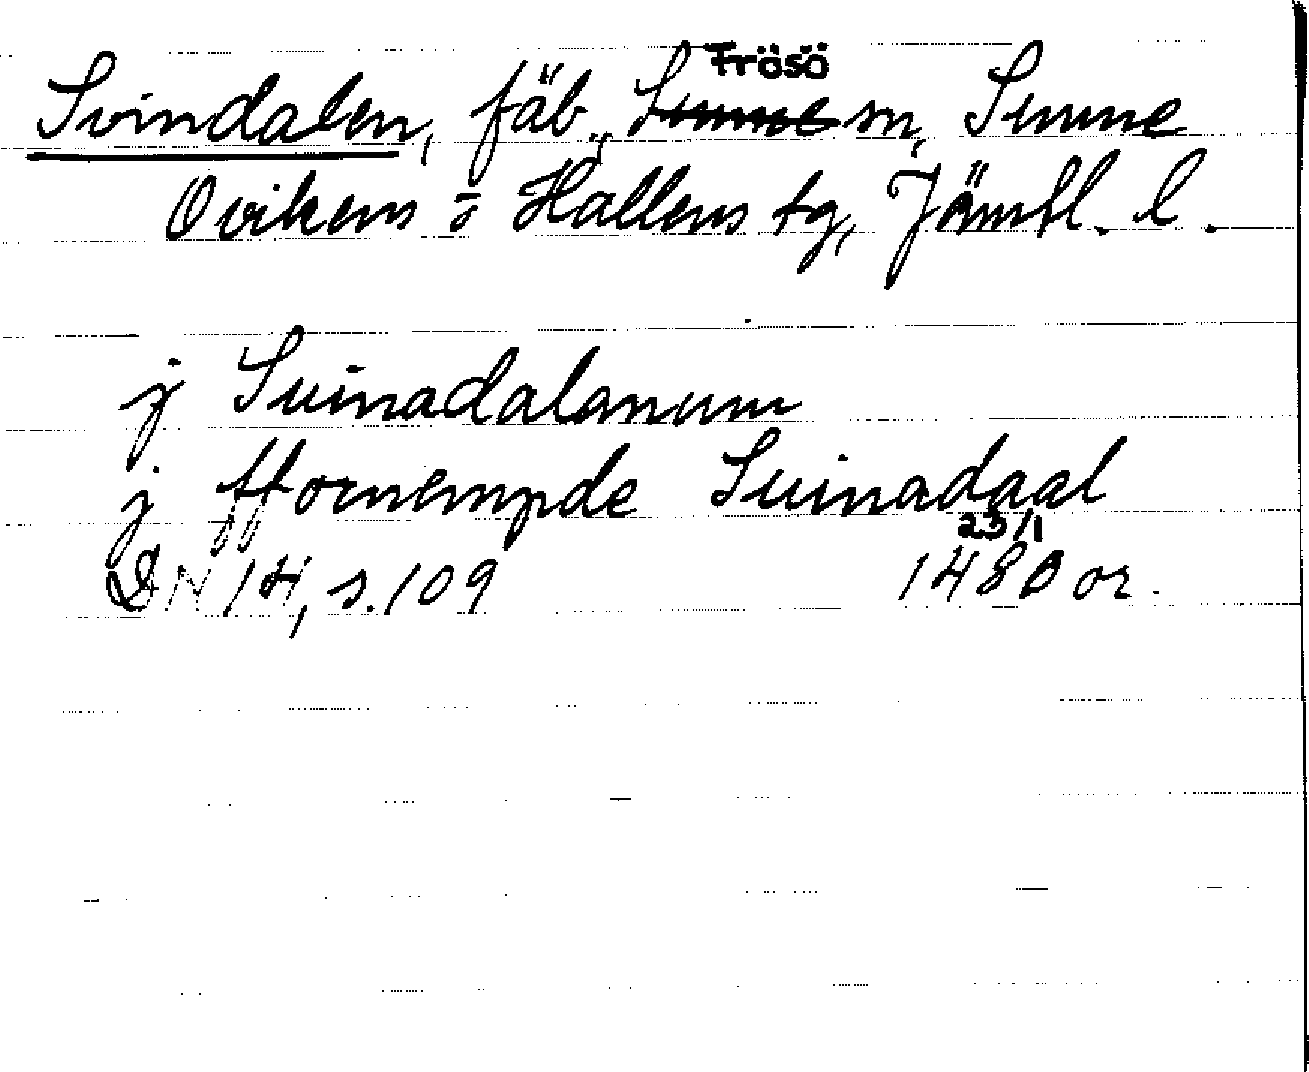 Frösö
Svindalen, fäb., Sunne sn, Sunne
Ovikens o Hallens tg, Jämtl. l.
j Suinadalanum
j ffornempde Suinadaal
23/1
DN 14, s. 109 1480 or.